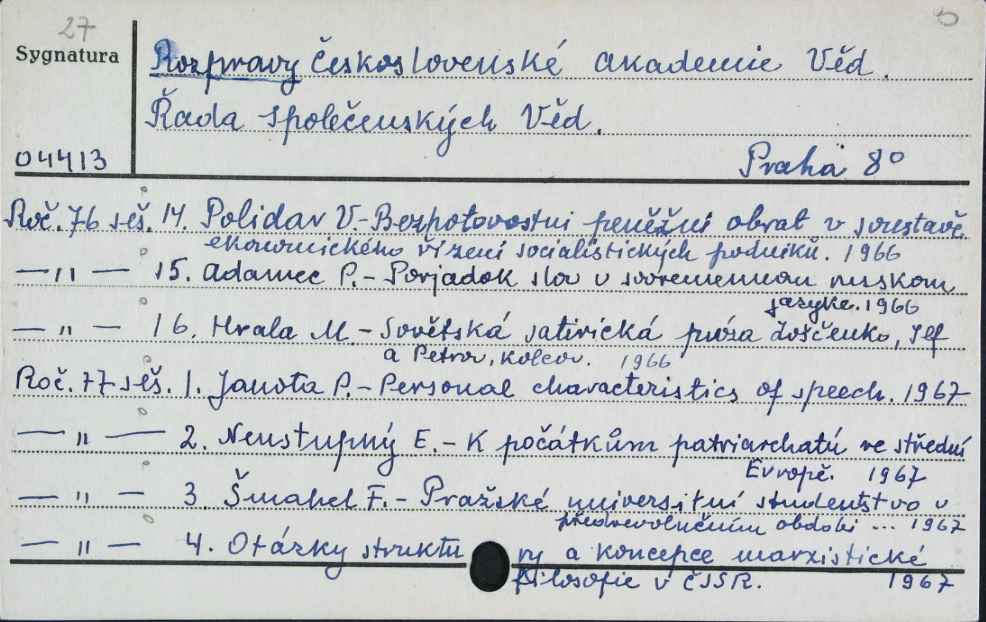 27
Sygnatura
Rozpravy Československé akademie Věd.
Řada společenských Věd.
04413
Praha 8°
Roč. 76 seš. 14. Polidar V. - Bezhotovostní peněžní obrat v soustavě
ekonomického řízení socialistických podniků. 1966
— " — 15. Adamec P. - Porjadok slov v sovremennom russkom
jazyke. 1966
— " — 16. Hrala M. - Sovětská satirická próza Zoščenko, Ilf
a Petrov, Kolcov. 1966
Roč. 77 seš. 1. Janota P. - Personal characteristics of speech. 1967
— " — 2. Neustupný E. - K počátkům patriarchatú ve střední
Evropě. 1967
— " — 3. Šmahel F. - Pražské universitní studentstvo v
předrevolučním obdobi ... 1967
— " — 4. Otázky struktury a koncepce marxistické
filosofie v ČSSR. 1967